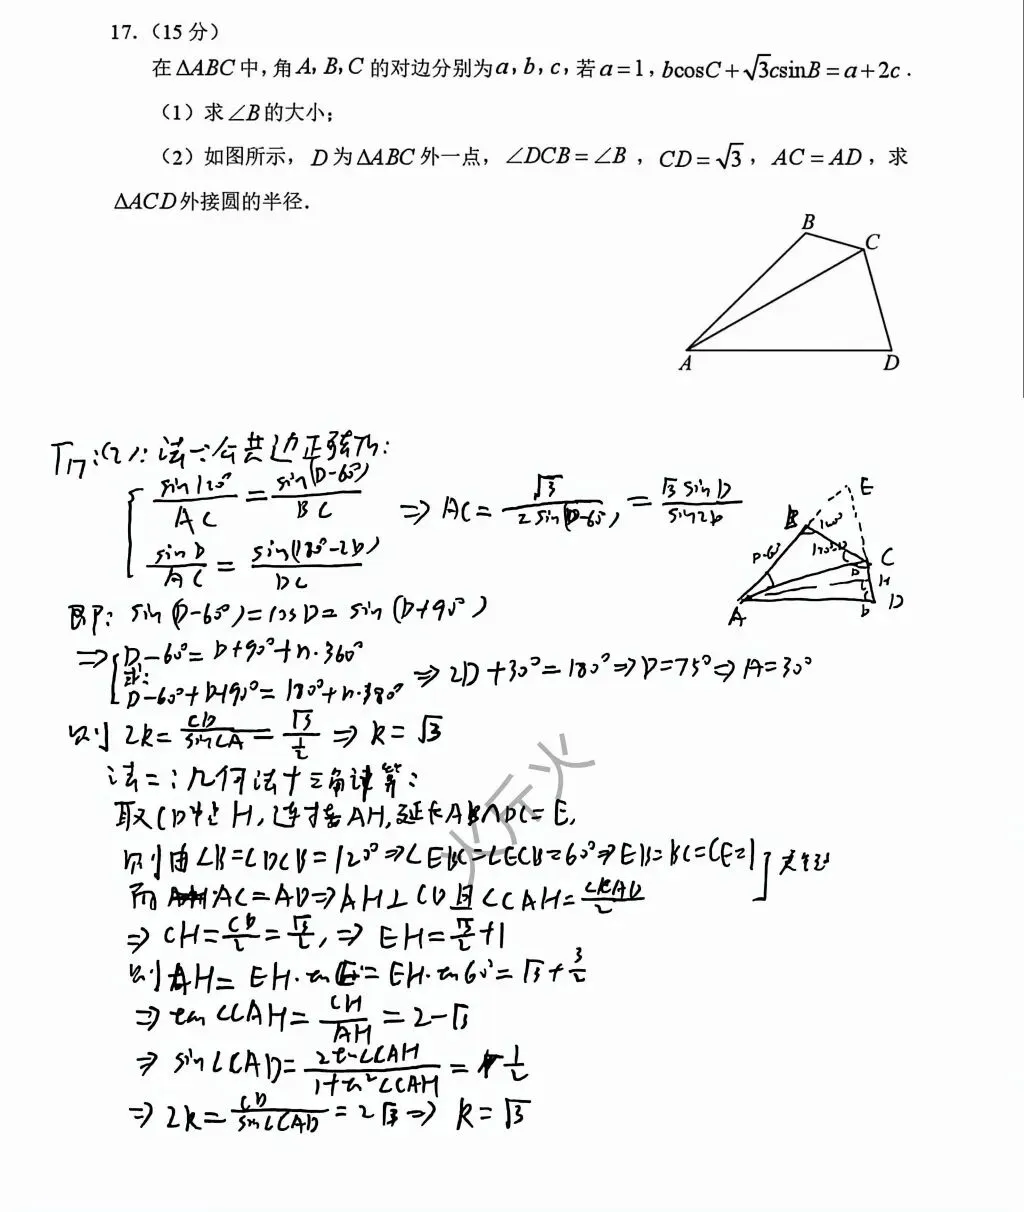 17.（15 分）
在 ΔABC 中，角 A, B, C 的对边分别为 a, b, c，若 a=1, bcosC+√3csinB=a+2c.
（1）求∠B的大小；
（2）如图所示，D 为 ΔABC 外一点，∠DCB=∠B，CD=√3，AC=AD，求
ΔACD外接圆的半径.
B
C
A
D
T17:(2): 法一:公共边正弦:
{ sin120°/AC = sin(D-60°)/BC
sinD/AC = sin(180°-2D)/DC
⇒ AC = √3/2sin(D-60°) = √3 sinD/sin2D
E
B
120°
D-60°
C
D
H
A
D
即: sin(D-60°)=cosD=sin(D+90°)
⇒ { D-60°=D+90°+n·360°
或:
D-60°+D+90°=180°+n·380°
⇒ 2D+30°=180° ⇒ D=75° ⇒ A=30°
则 2R = CD/sin∠A = √3/(1/2) ⇒ R=√3
法二:几何法+三角计算:
取CD中点H,连接AH,延长AB∩DC=E,
则由∠B=∠DCB=120°⇒∠EBC=∠ECB=60°⇒EB=BC=CE=1
而 AC=AD⇒AH⊥CD且∠CAH=∠CAD/2
⇒ CH=CD/2=√3/2, ⇒ EH=√3/2+1
则AH=EH·tanE=EH·tan60°=√3+3/2
⇒ tan∠CAH=CH/AH=2-√3
⇒ sin∠CAD=2tan∠CAH/1+tan²∠CAH=1/2
⇒ 2R=CD/sin∠CAD=2√3⇒ R=√3
火斤火